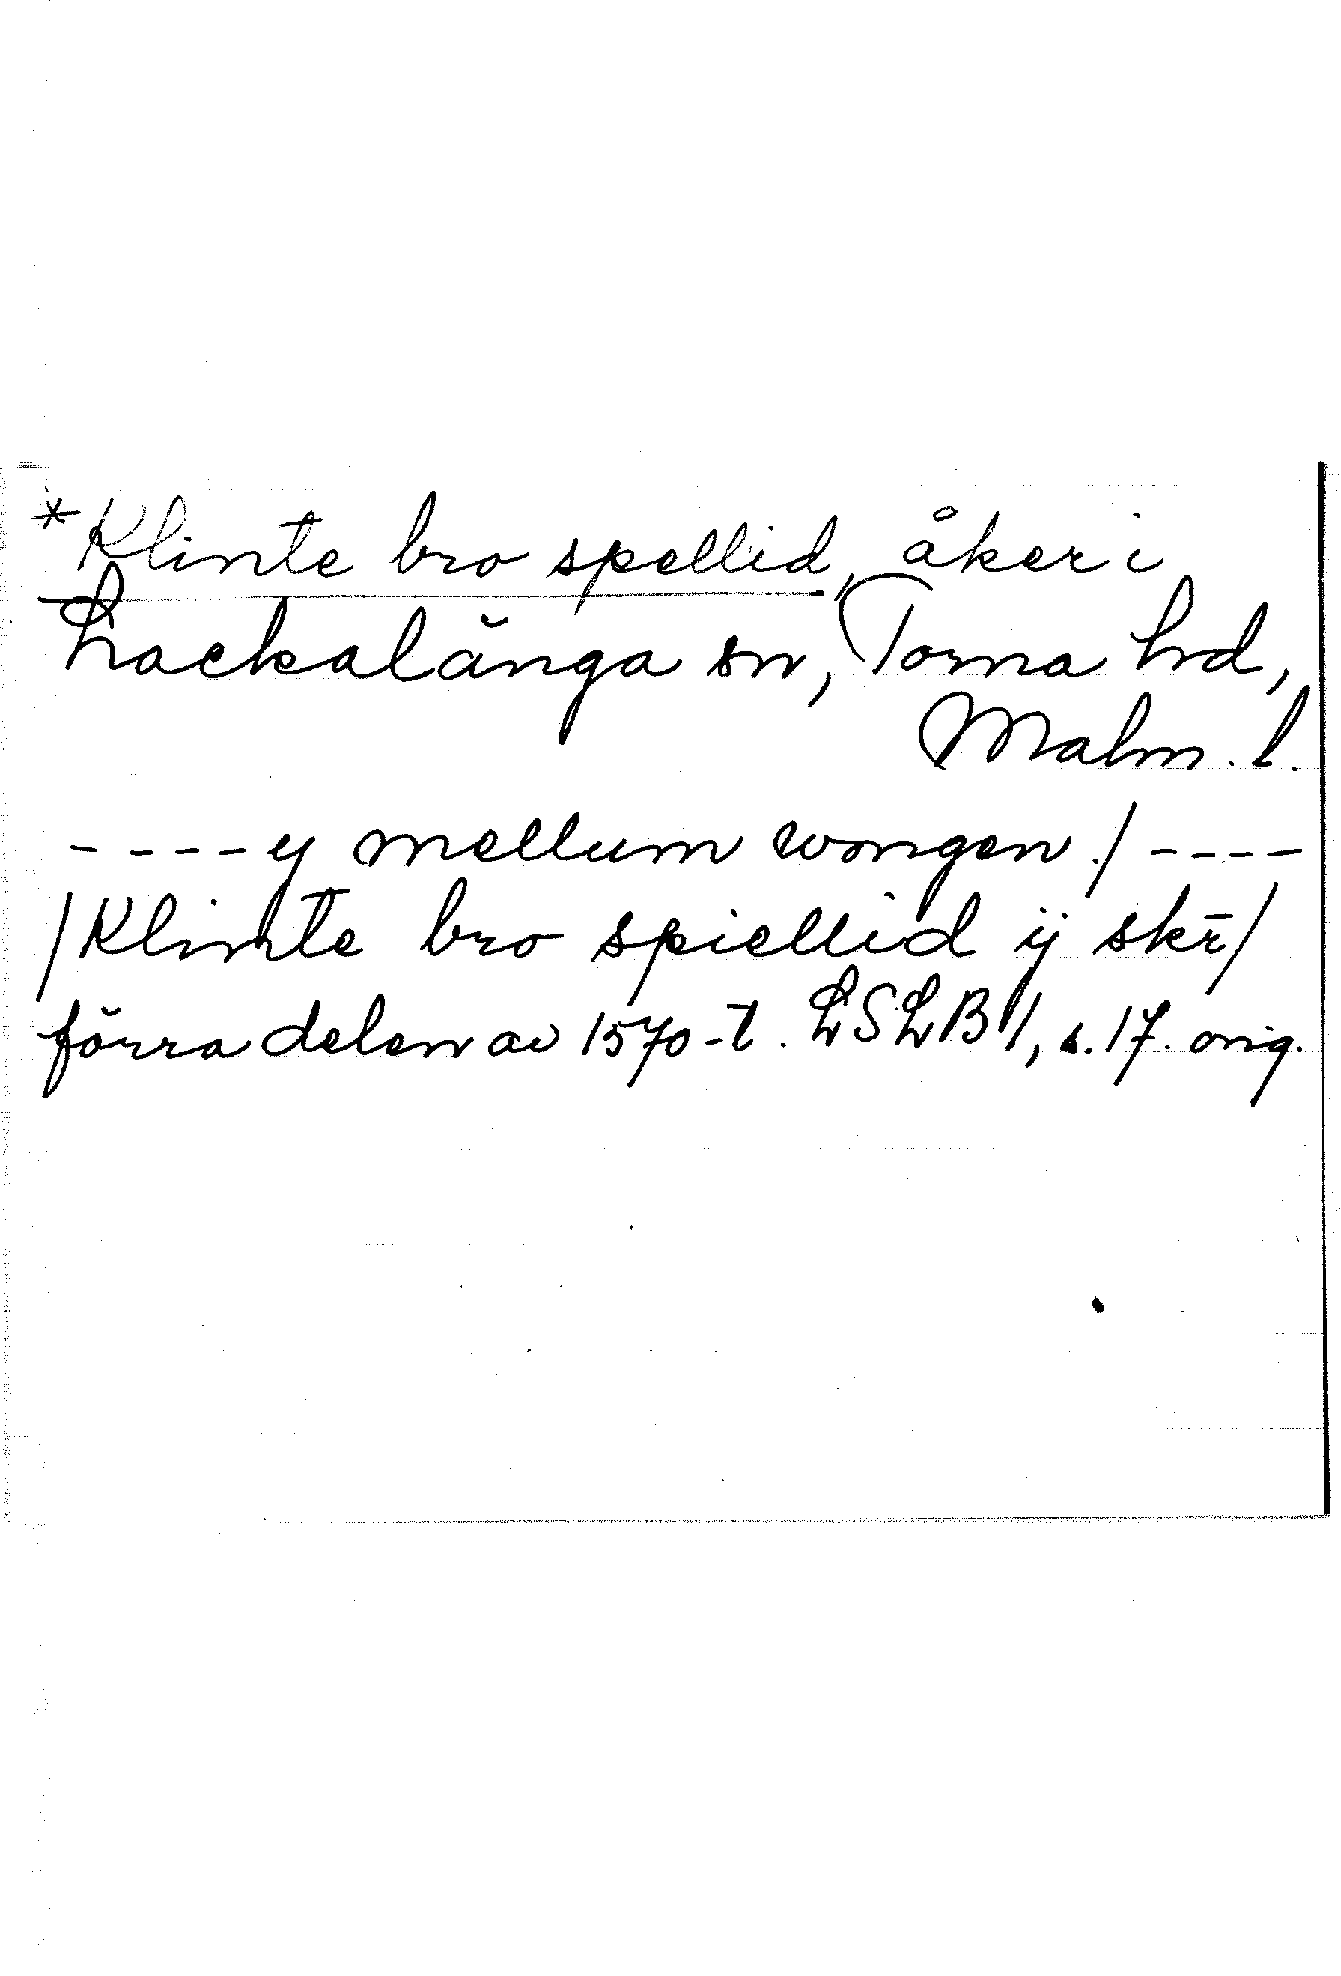 *Klinte bro spellid, åker i
Lackalänga sn, Torna hrd,
Malm. l.
- - - - y mellum wongen / - - - -
/ Klinte bro spiellid ij skr̄ /
förra delen av 1570-t. LSLB 1, s. 17. orig.